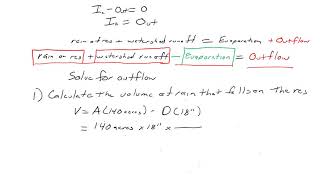 In - Out = 0
In = Out
rain of res + watershed runoff = Evaporation + Outflow
rain on res + watershed runoff - Evaporation = Outflow
Solve for outflow
1) Calculate the volume of rain that falls on the res
V = A(140 acres) - D(18")
= 140 acres x 18" x